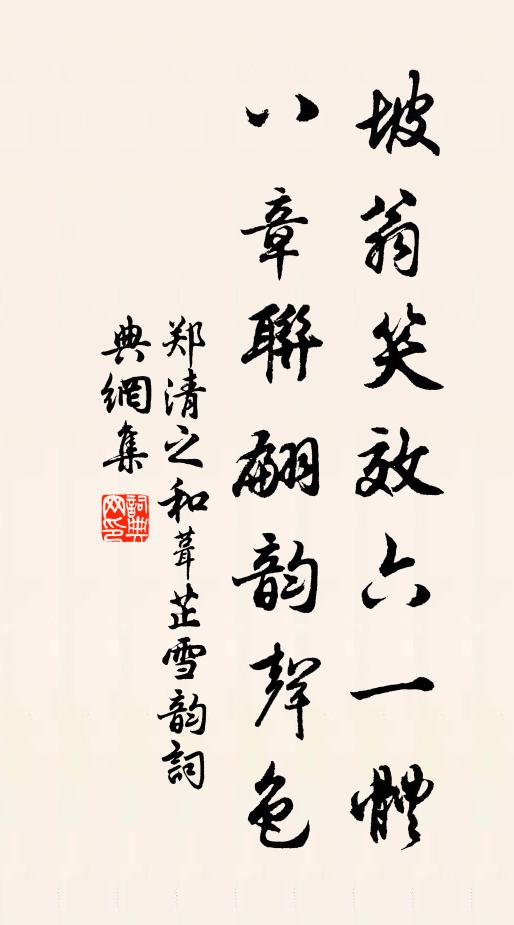 坡翁笑效六一體
八章聯翩韵聲色
郑清之和葺芷雪韵詞
典網集
詞典網印